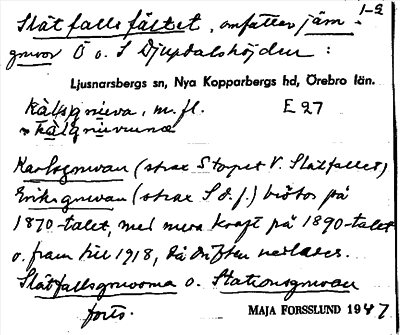 1-2
Slätfallsfältet, omfattar järn-
gruvor Ö o. S Djupdalshöjden:
Ljusnarsbergs sn, Nya Kopparbergs hd, Örebro län.
kàlsgruva, m. fl. E 27
Karlsgruvan (strax S torpet V. Slätfallet,)
Eriksgruvan (strax S d. f.) bröts på
1870-talet, med mera kraft på 1890-talet
o. fram till 1918, då driften nerlades.
Slätfallsgruvorna o. Stationsgruvan
forts. MAJA FORSSLUND 1947